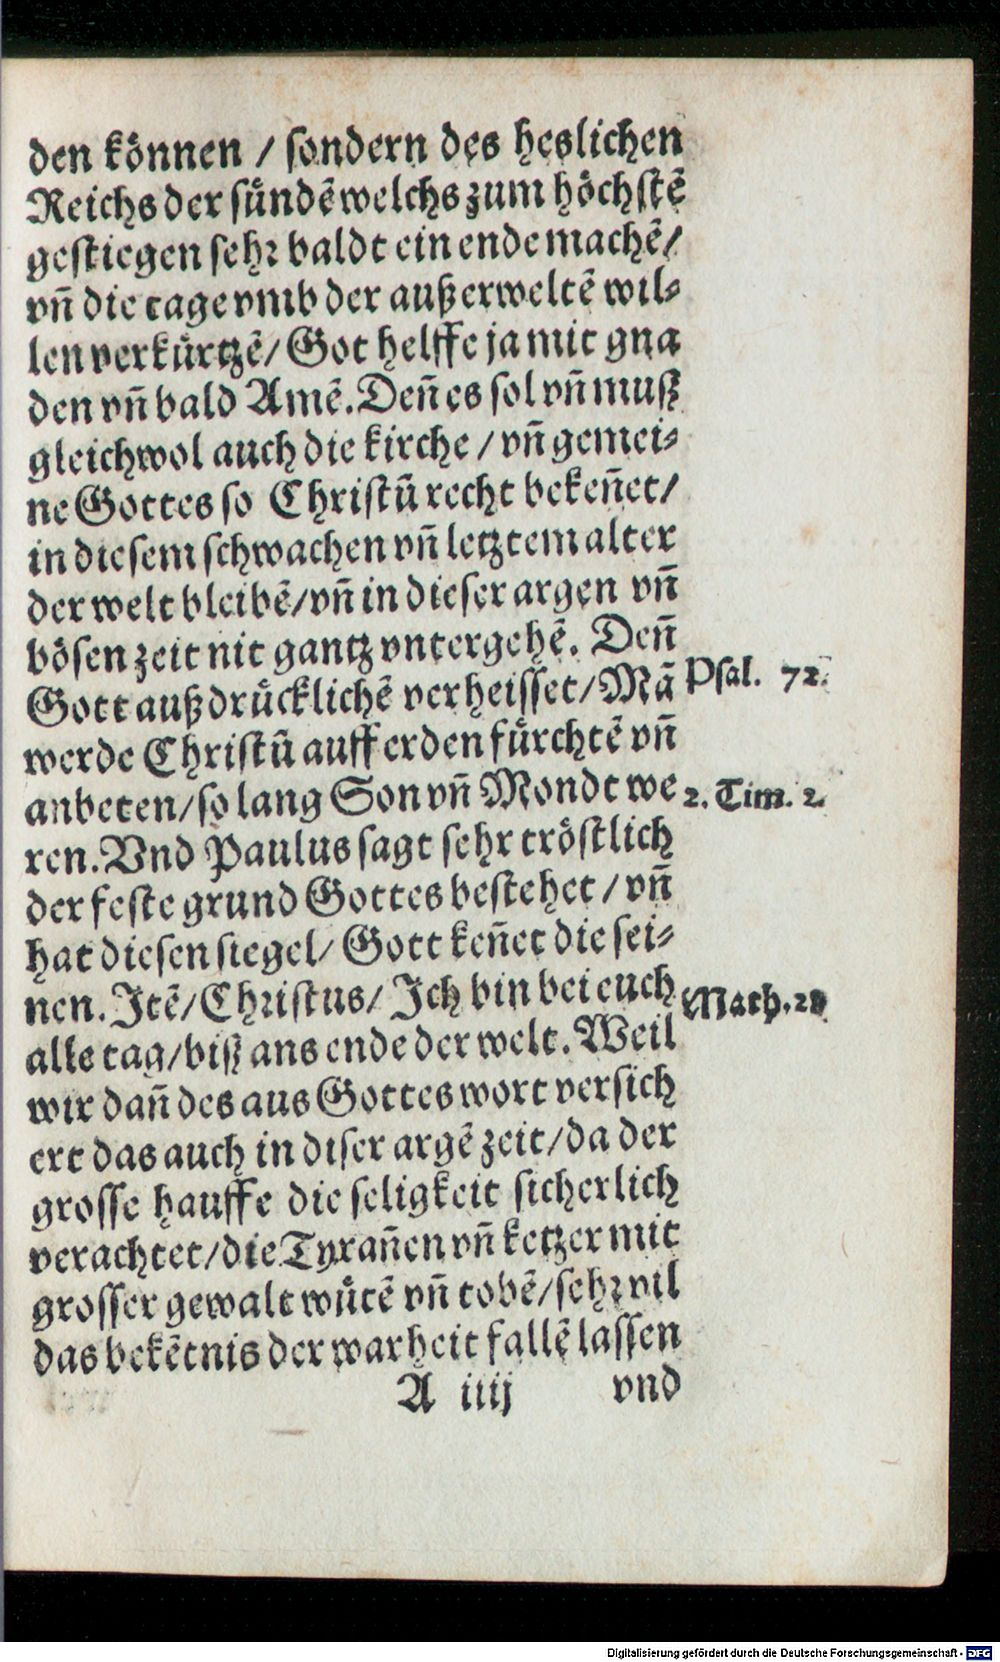 den können / sondern des heslichen
Reichs der sündẽ welchs zum höchstẽ
gestiegen sehr baldt ein ende machẽ/
vñ die tage vmb der außerweltẽ wil⸗
len verkürtzẽ/ Got helffe ja mit gna
den vñ bald Amẽ. Deñ es sol vñ muß
gleichwol auch die kirche / vñ gemei⸗
ne Gottes so Christũ recht bekeñet/
in diesem schwachen vñ letztem alter
der welt bleibẽ/ vñ in dieser argen vñ
bösen zeit nit gantz vntergehẽ. Deñ
Gott außdrücklichẽ verheisset/ Mã Psal. 72.
werde Christũ auff erden fürchtẽ vñ
anbeten/ so lang Son vñ Mondt we 2. Tim. 2.
ren. Vnd Paulus sagt sehr tröstlich
der feste grund Gottes bestehet / vñ
hat diesen siegel/ Gott keñet die sei⸗
nen. Itẽ/ Christus/ Ich bin bei euch Math. 28
alle tag/ biß ans ende der welt. Weil
wir dañ des aus Gottes wort versich
ert das auch in diser argẽ zeit/ da der
grosse hauffe die seligkeit sicherlich
verachtet/ die Tyrañen vñ ketzer mit
grosser gewalt wütẽ vñ tobẽ/ sehr vil
das bekẽtnis der warheit fallẽ lassen
A iiij vnd
Digitalisierung gefördert durch die Deutsche Forschungsgemeinschaft - DFG